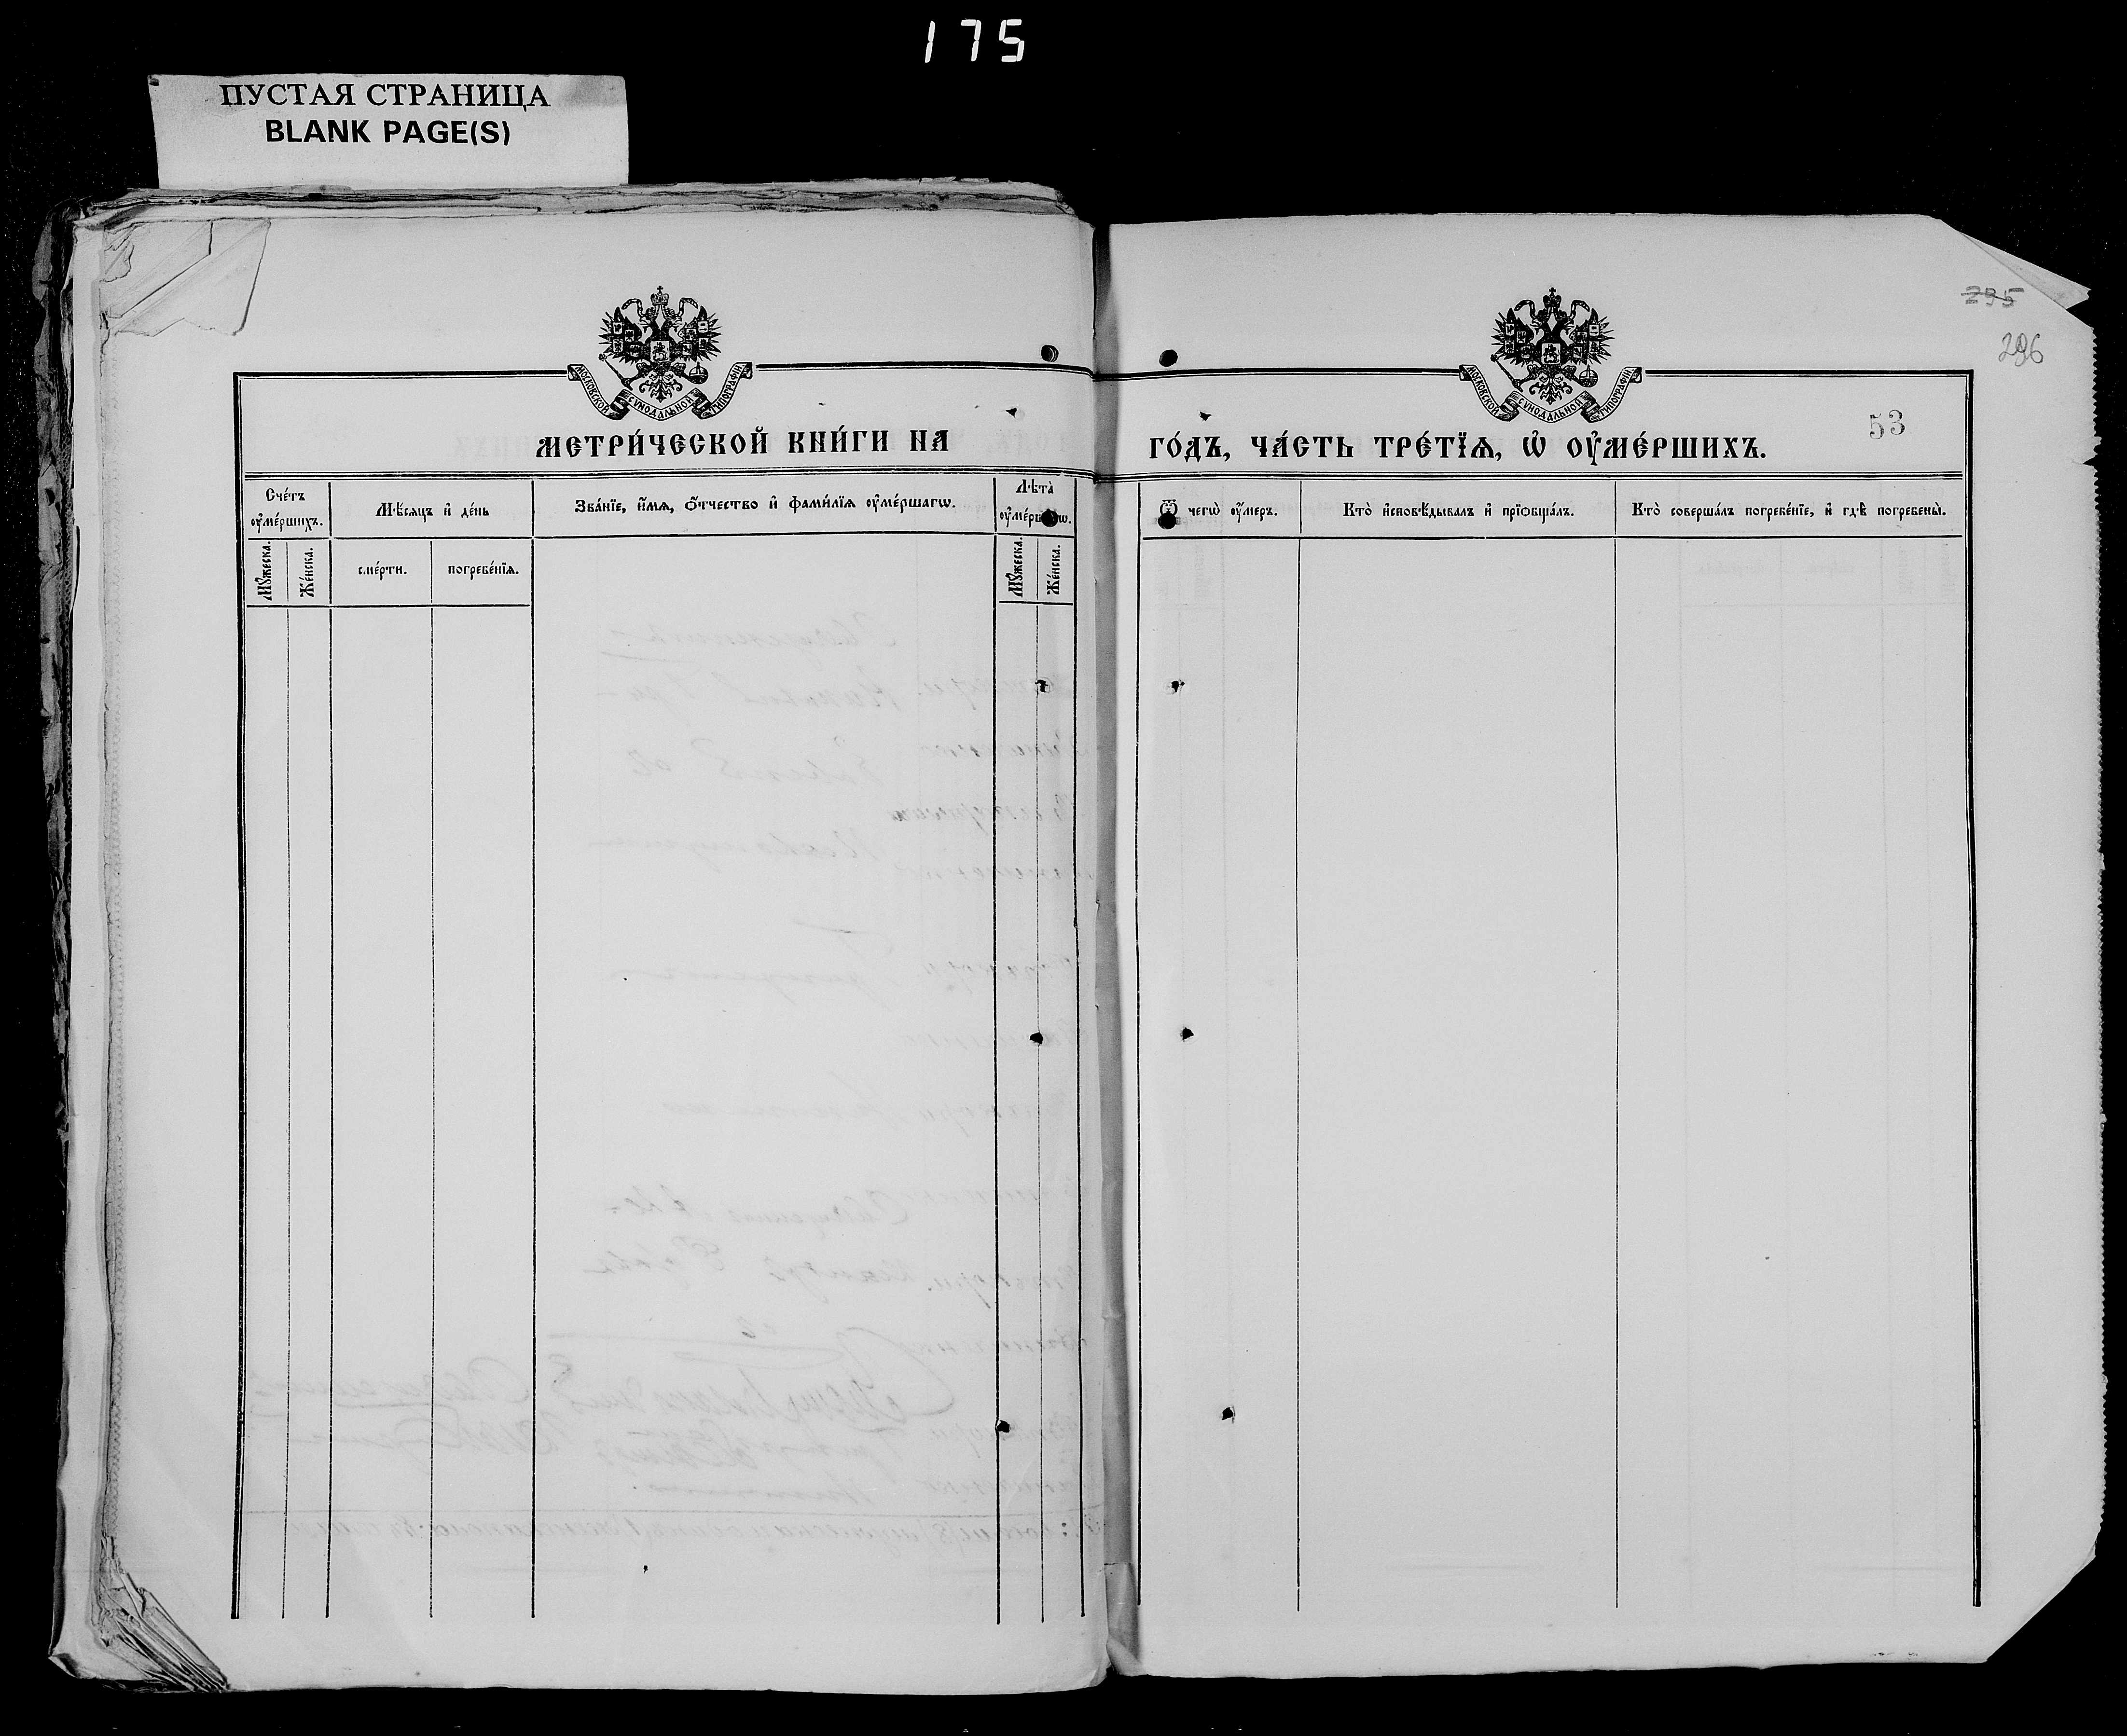 175
ПУСТАЯ СТРАНИЦА
BLANK PAGE(S)
295
296
МОСКОВСКОЙ СѴНОДАЛЬНОЙ ТИПОГРАФІИ
МОСКОВСКОЙ СѴНОДАЛЬНОЙ ТИПОГРАФІИ
53
МЕТРИ́ЧЕСКОЙ КНИ́ГИ НА
ГО́ДЪ, ЧА́СТЬ ТРЕ́ТЇѦ, Ѡ҆ ОУ҆МЕ́РШИХЪ.
Сче́тъ оу҆ме́ршихъ.
Мѣ́сяцъ и҆ де́нь
Зва́нїе, и҆́мѧ, ѻ҆́тчество и҆ фами́лїѧ оу҆ме́ршагѡ.
Лѣ́та оу҆ме́ршагѡ.
Ѿ чегѡ̀ оу҆́меръ.
Кто̀ и҆сповѣ́дывалъ и҆ прїѡбща́лъ.
Кто̀ соверша́лъ погребе́нїе, и҆ гдѣ̀ погребены̀.
Мꙋ́жеска.
Же́нска.
сме́рти.
погребе́нїѧ.
Мꙋ́жеска.
Же́нска.